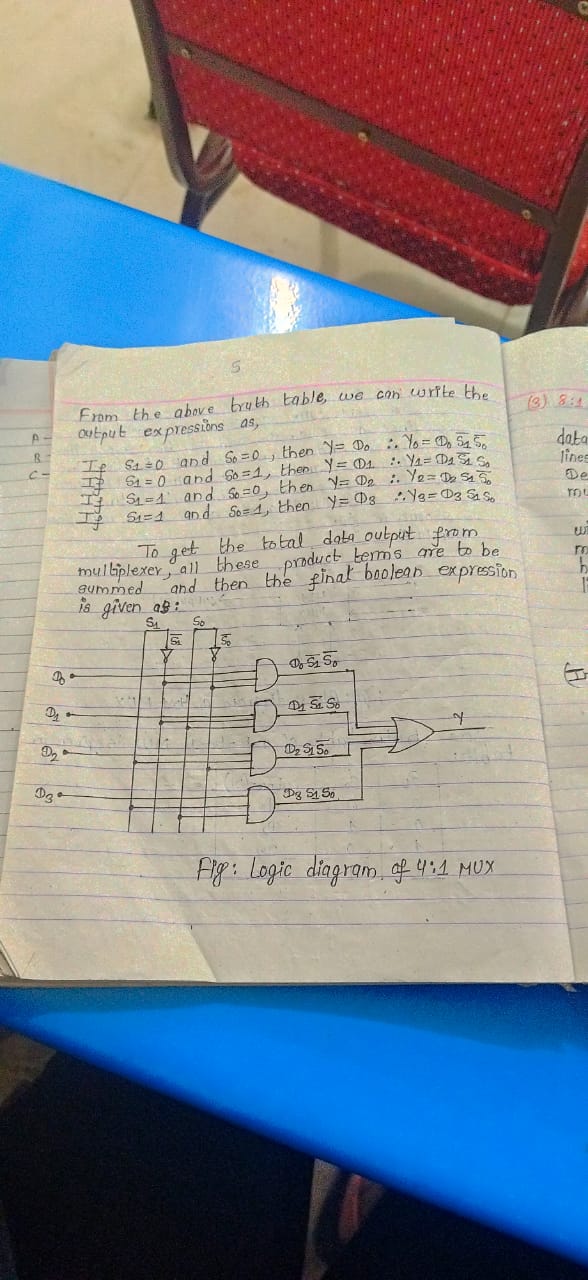 5
From the above truth table, we can write the
output expressions as,
If S1=0 and S0=0, then Y= D0 ∴ Y0= D0 S̅1 S̅0
If S1=0 and S0=1, then Y= D1 ∴ Y1= D1 S̅1 S0
If S1=1 and S0=0, then Y= D2 ∴ Y2= D2 S1 S̅0
If S1=1 and S0=1, then Y= D3 ∴ Y3= D3 S1 S0
To get the total data output from
multiplexer, all these product terms are to be
summed and then the final boolean expression
is given as:
S1 S0
S̅1 S̅0
D0 D0 S̅1 S̅0
D1 D1 S̅1 S0
Y
D2 D2 S1 S̅0
D3 D3 S1 S0
Fig: Logic diagram of 4:1 MUX
A-
B-
C-
(3) 8:1
data
lines
De